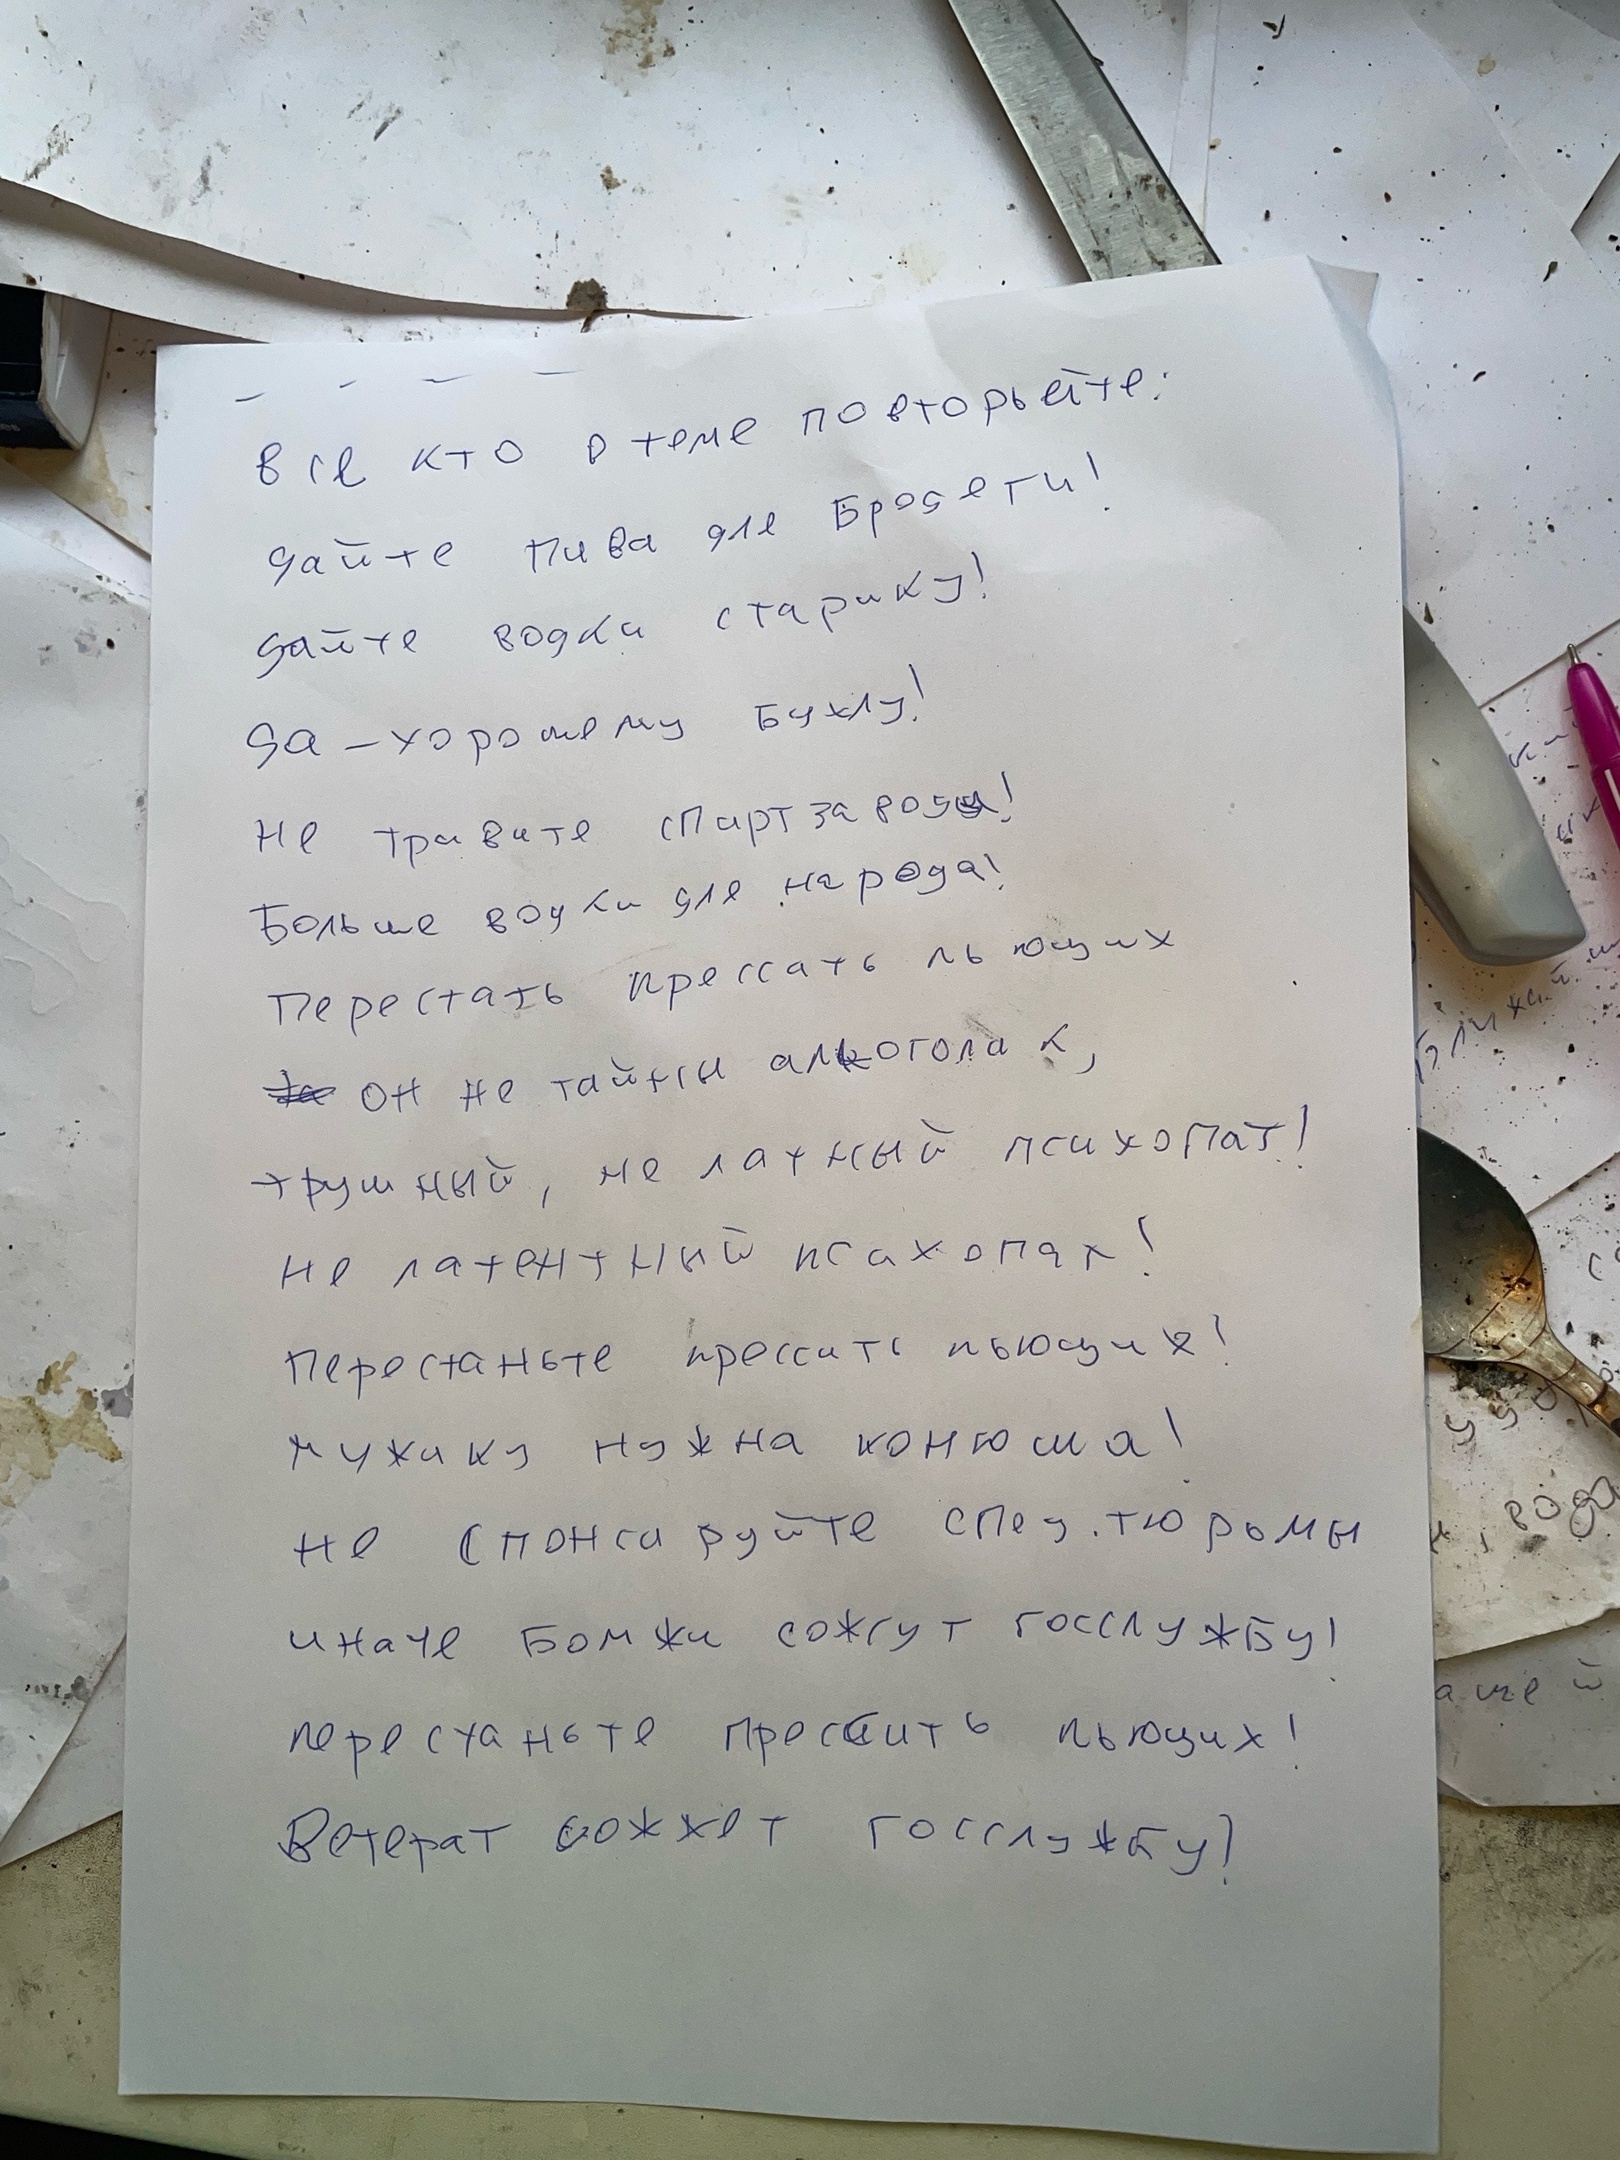 все кто в теме повторьейте:
дайте пива для Бродяги!
дайте водки старику!
да - хорошему Бухлу!
не травите спиртзаводы!
Больше водки для народа!
Перестать прессать пьющих
он не тайный алкоголик,
трушный, не латный психопат!
не латентный психопат!
перестаньте прессить пьющих!
мужику нужна конюша!
не спонсируйте спец.тюрьмы
иначе Бомжи сожгут госслужбу!
перестаньте прессить пьющих!
Ветерат сожжет госслужбу!